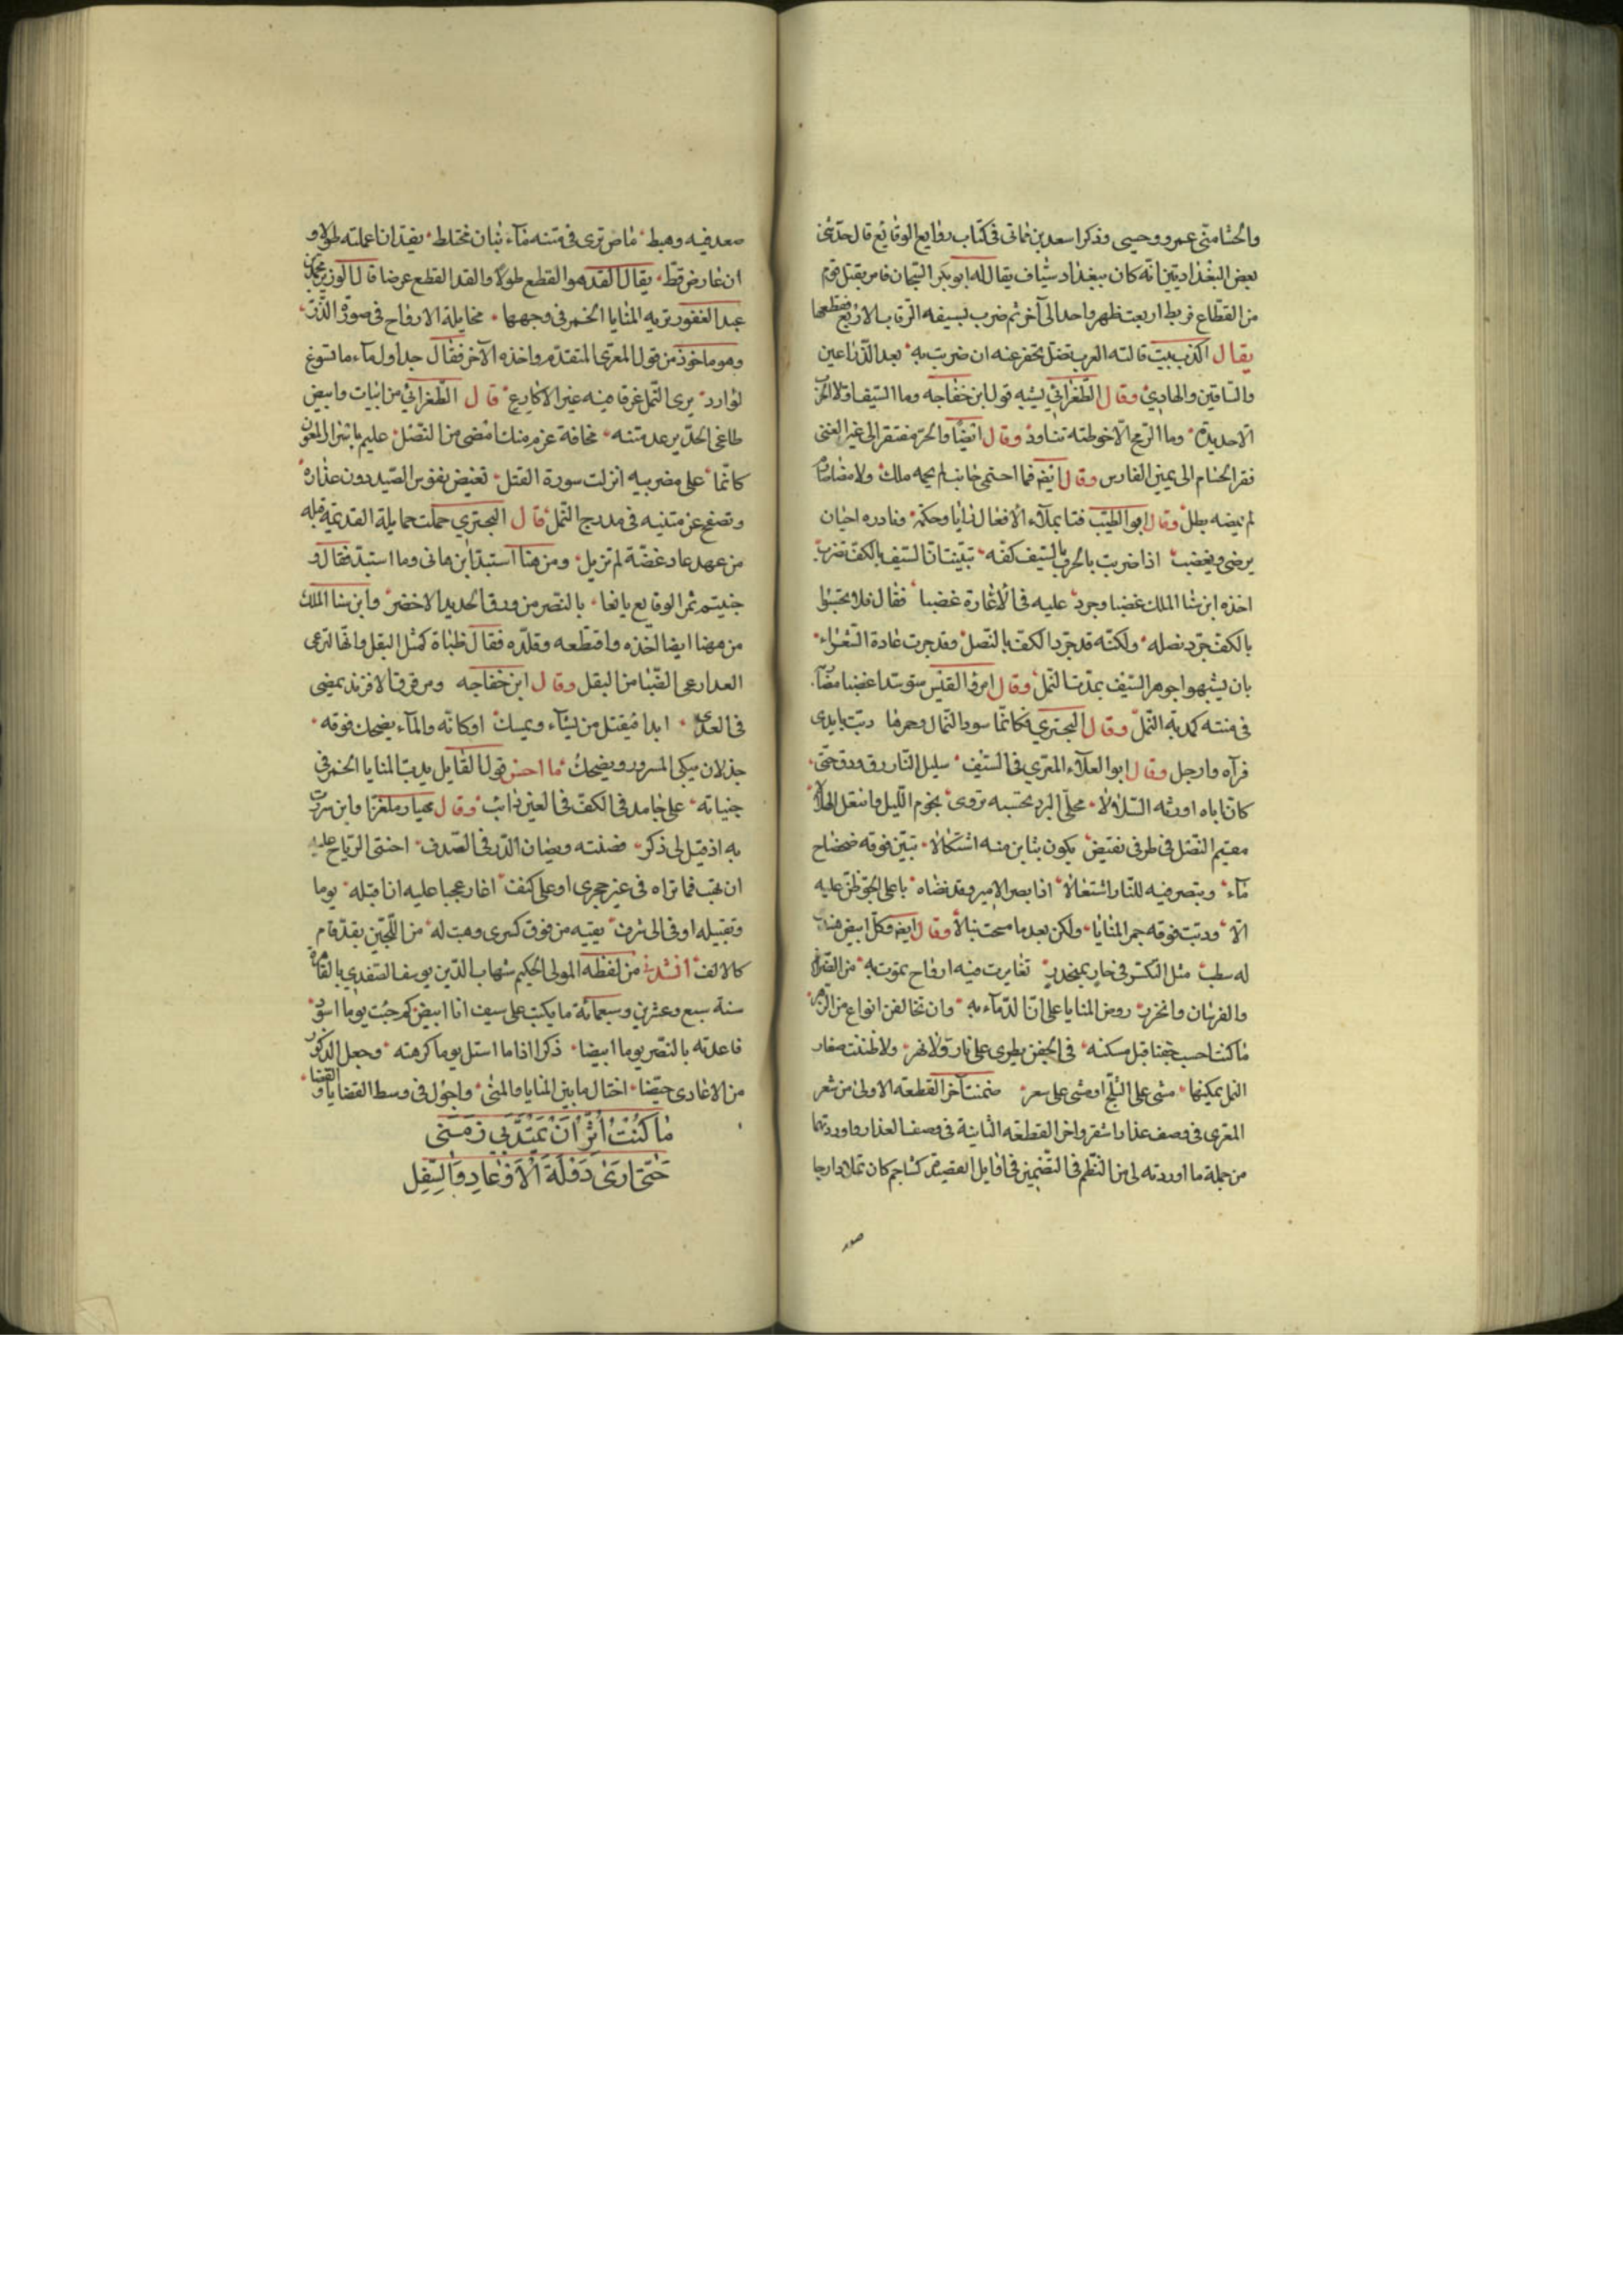 والحسام متى عمرو وحيى وذكر اسعد بن مماتى فى كتاب روايع الوقايع قال حدّثنى
بعض البغداديّين انّه كان ببغداد سيّاف يقال له ابو بكر التيحان فامر بقتل قوم
من القطّاع فربط اربعة ظهر واحد الى آخر ثم ضرب بسيفه الرقاب الاربع فقطعها
يقال اكذب بيت قالته العرب تضلّ تحفر عنه ان ضربت به بعد الذراعين
والساقين والهادى وقال الطغرائي يشبه قول ابن خفاجه وما السيف
الّا حديدة وما الرمح الّا خوطته تتاود وقال ايضًا والحرّ مفتقر الى غير الغنى
فقر الحسام الى يمين الفارس وقال ايضه فما احتمى جانب لم يحمه ملك ولا مضا صارم
لم يمضه بطل وقال ابو الطيّب فتا يملآء الافعال رايا وحكمة ونادره احيان
يرضى ويغضب اذا ضربت بالحرب بالسيف كفّه تبيّنت انّ السيف بالكفّ تضرب
اخذه ابن سنا الملك غضبا وجرد عليه فى الاغارة غضبا فقال فلا تحسبوا
بالكفّ جرّد نصله ولكنّه قد جرّد الكفّ بالنصل وقد جرت عادة الشعراء
بان يشبّهوا جوهر السيف بمدبّ النمل وقال امرؤ القيس متوسّدا عضبا مضاربه
فى متنه كمدبّة النمل وقال البحتري فكانّما سود النمال وحمرها دبّت بايدى
قرآه وارجل وقال ابو العلآء المعرّي فى السيف سليل النار رقّ ودقّ حتّى
كانّ اباه اورثه السلالا محلّى البرد تحسبه تردى نجوم الليل وانتعل الهلالا
مقيم النصل فى طرفى نقيض يكون تباين منه اشتكالا تبيّن فوقه ضحضاح
مآء ويتصر فيه للنار اشتعالا اذا بصر الامير وقد نضاه باعلى الجوّ ظنّ عليه
الّا ودبّت فوقه حمر المنايا ولكن بعد ما مسحت نمالا وقال ايضه وكلّ ابيض هندى
له سطب مثل التكسّر فى جار بمنحدر تغايرت فيه ارواح تموت به من الضراغم
والفرسان والجزر روض المنايا على انّ الدمآء به وان تخالفن انواع من الزهر
ما كنت احسب جفنا قبل مسكنه فى الجفن يطوى على نار ولا نهر ولا ظننت صغار
النمل يمكنها مشى على اللّج او مشى على سعر ضمنت آخر القطعه الاولى من شعر
المعرى فى وصف عذار اشقر واخر القطعه الثانية فى وصف العذار واوردتهما
من جملة ما اوردته لى من النظم فى التضمين فى اوايل القصيد كشاجم كان نملا دارجا
صعد
صعد فيه وهبط ماض ترى فى متنه مآء بنار مختلط يقدّ ان اعملته طولا و
ان عارض قطّ يقال القد هو القطع طولا والقد القطع عرضا قال الوزير محمد بن
عبد الغفور تريه المنايا الحمر فى وجهها مخايلة الارواح فى صورة الذرّ
وهو ماخوذ من قول المعرّى المتقدّم واخذه الآخر فقال جداول مآء ما تسوغ
لوارد يرى النمل غرقا فيه غير الاكارع قال الطغرائي من ابيات وابيض
طاغى الحدّ يرعد متنه مخافة عزم منك امضى من النصل عليم باسرار المنون
كانّما على مضربيه انزلت سورة القتل تفيض نفوس الصيد دون غراره
وتصفح عن متنيه فى مدرج النمل قال البحتري حملت حمايله القديمة بقلة
من عهد عاد غضّة لم تزبل ومن هنا استبدّ ابن هانى وما استبدّ فقال و
جنيتم ثمر الوقايع يانعا بالنصر من ورق الحديد الاخضر وابن سنا الملك
من ههنا ايضا اخذه واقتطعه وقلّده فقال ظباة كمثل البقل وانّها لترعى
العدا رعى الظبا من البقل وقال ابن خفاجه ومرقرق الافرند يمضى
فى العدى ابدا فيقتل من يشآء ويمسك اوكانّه والمآء يضحك فوقه
جذلان يبكى المسرور ويضحك ما احسن قول القايل يدبّ المنايا الحمر فى
جنباته على جامد فى الكفّ فى العين ذائب وقال مهيار ملغزا وابن سرب
به اذ قيل لى ذكر فصنته وصيان الدرّ فى الصدف اخشى الرياح عليه
ان تهب فما تراه فى غير حجرى او على كنف اغار عجبا عليه ان اقبله يوما
وتقبيله اوفى الى شرف يقيه من فوق كسرى وهبت له من اللجين بقدّ قام
كالالف انشدنى من لفظه المولى الحكيم شهاب الدين يوسف الصفدي بالقاهرة
سنة سبع وعشرين وسبعمائة ما يكتب على سيف انا ابيض كم جئت يوما اسود
فاعدته بالنصر يوما ابيضا ذكر اذا ما استلّ يوم كريهة وجعل الذكور
من الاعادى حيّضا اختال ما بين المنايا والمنى واجول فى وسط القضايا والقضا
مَا كُنْتُ أُثِرُ أَنْ يَمْتَدَّ بِي زَمَنِي
حَتَّى أَرَى دَوْلَةَ الْأَوْغَادِ وَالسِّفَلِ